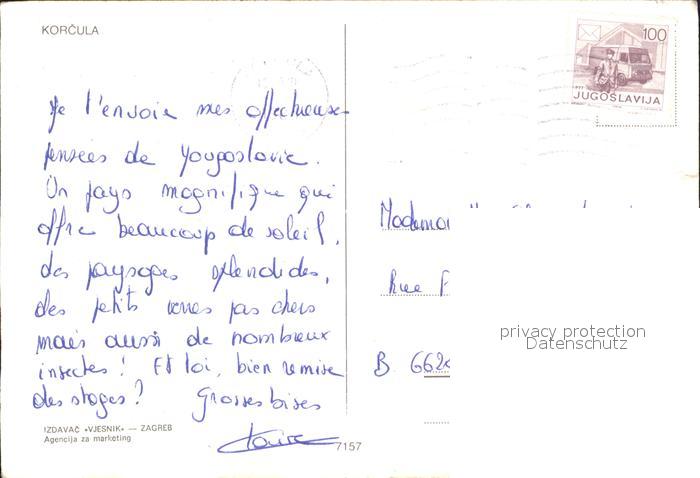 KORČULA
100
JUGOSLAVIJA
Je t'envoie mes affectueuses
pensées de Yougoslavie.
Un pays magnifique qui
offre beaucoup de soleil,
des paysages splendides,
des petits verres pas chers
mais aussi de nombreux
insectes ! Et toi, bien remise
des stages ? Grosses bises
IZDAVAČ «VJESNIK» — ZAGREB
Agencija za marketing
7157
Rue
B 662
privacy protection
Datenschutz